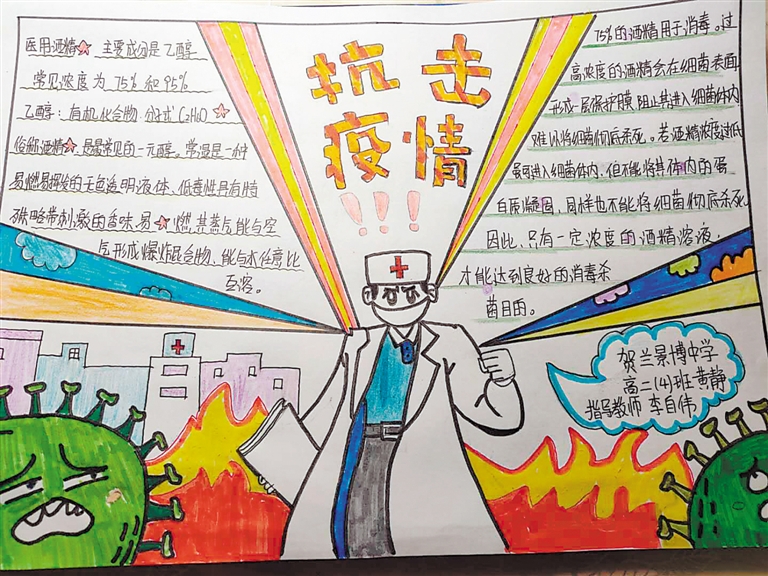 医用酒精 主要成分是乙醇
常见浓度为75%和95%
乙醇：有机化合物 分式C₂H₆O
俗称酒精 是最常见的一元醇。常温是一种
易燃易挥发的无色透明液体，低毒性具有特
殊略带刺激的香味 易燃，其蒸气能与空
气形成爆炸混合物，能与水任意比
互溶。
抗击
疫情
!!!
75%的酒精用于消毒。过
高浓度的酒精会在细菌表面
形成一层保护膜 阻止其进入细菌体内
难以将细菌彻底杀死。若酒精浓度过低
虽可进入细菌体内，但不能将其体内的蛋
白质凝固，同样也不能将细菌彻底杀死
因此，只有一定浓度的酒精溶液，
才能达到良好的消毒杀
菌目的。
贺兰景博中学
高二(4)班 黄静
指导教师 李自伟